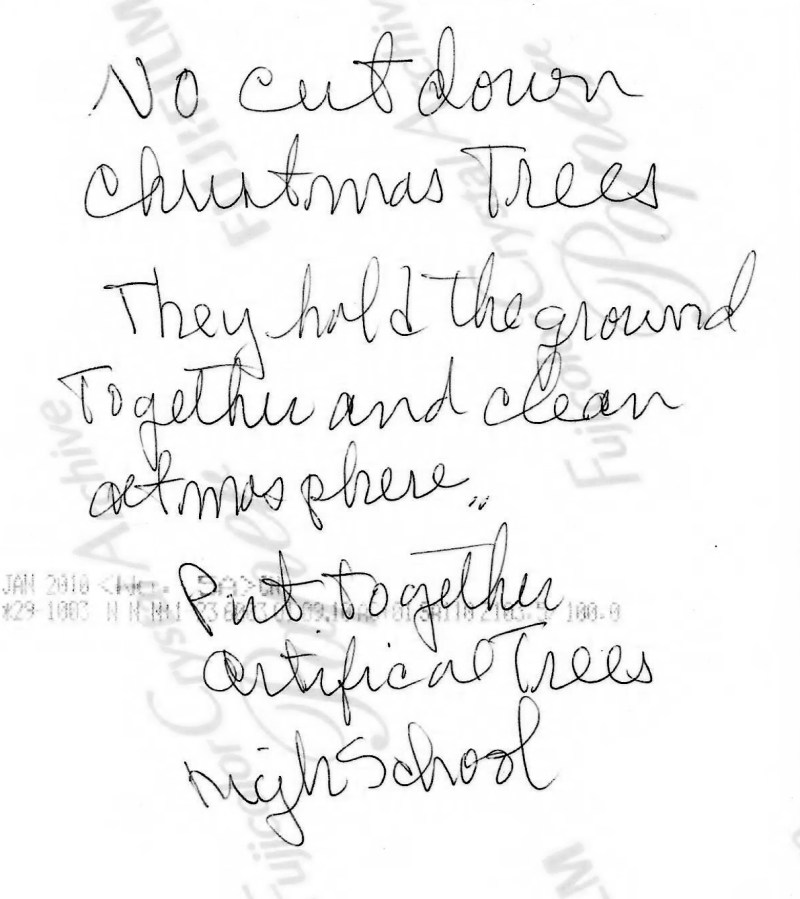 No cut down
Christmas Trees
They hold the ground
Together and clean
atmosphere..
Put together
artifical Trees
High School
FUJIFILM
Fujicolor Crystal Archive
JAN 2010
100.0